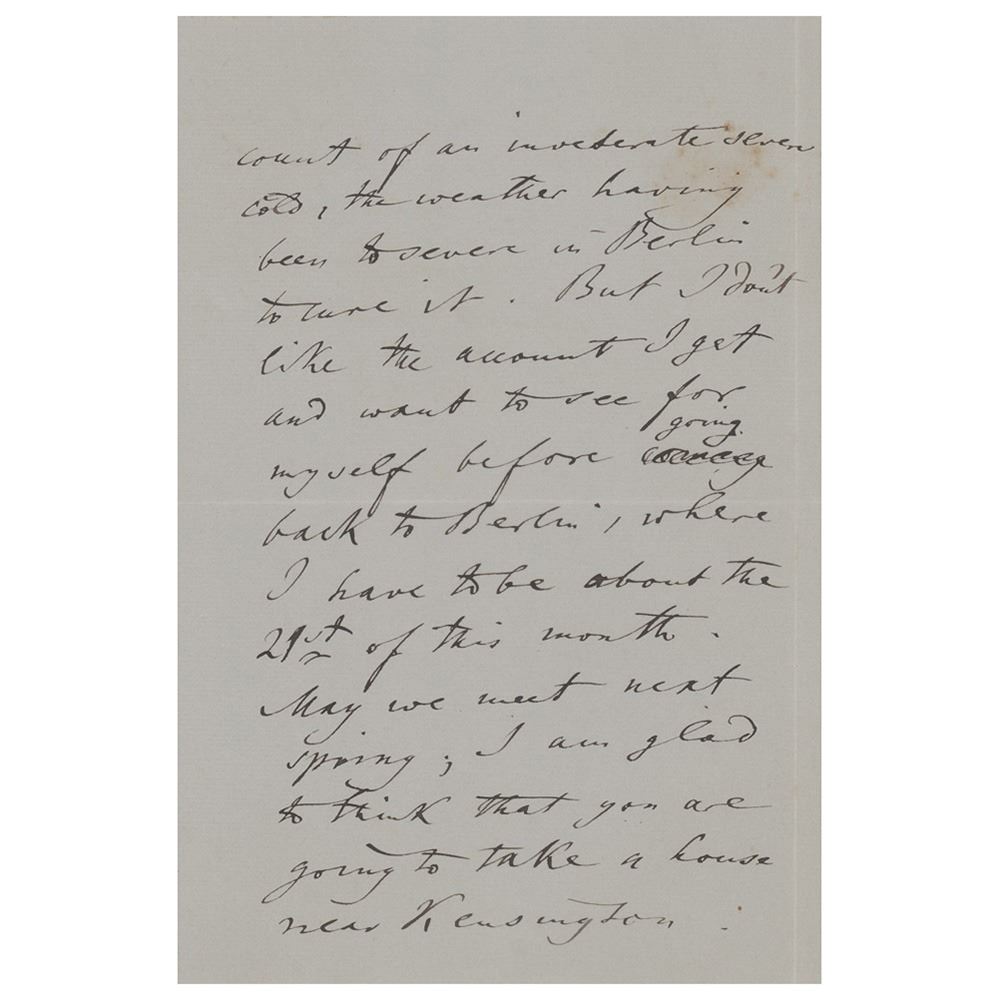 count of an inveterate severe
cold, the weather having
been to severe in Berlin
to cure it. But I don't
like the account I get
and want to see for
myself before going coming
back to Berlin, where
I have to be about the
21st of this month.
May we meet next
spring; I am glad
to think that you are
going to take a house
near Kensington.